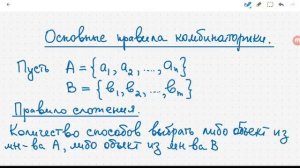 Основные правила комбинаторики.
Пусть A = {a₁, a₂, ..., aₙ}
B = {b₁, b₂, ..., bₘ}
Правило сложения.
Количество способов выбрать либо объект из
мн-ва A, либо объект из мн-ва B